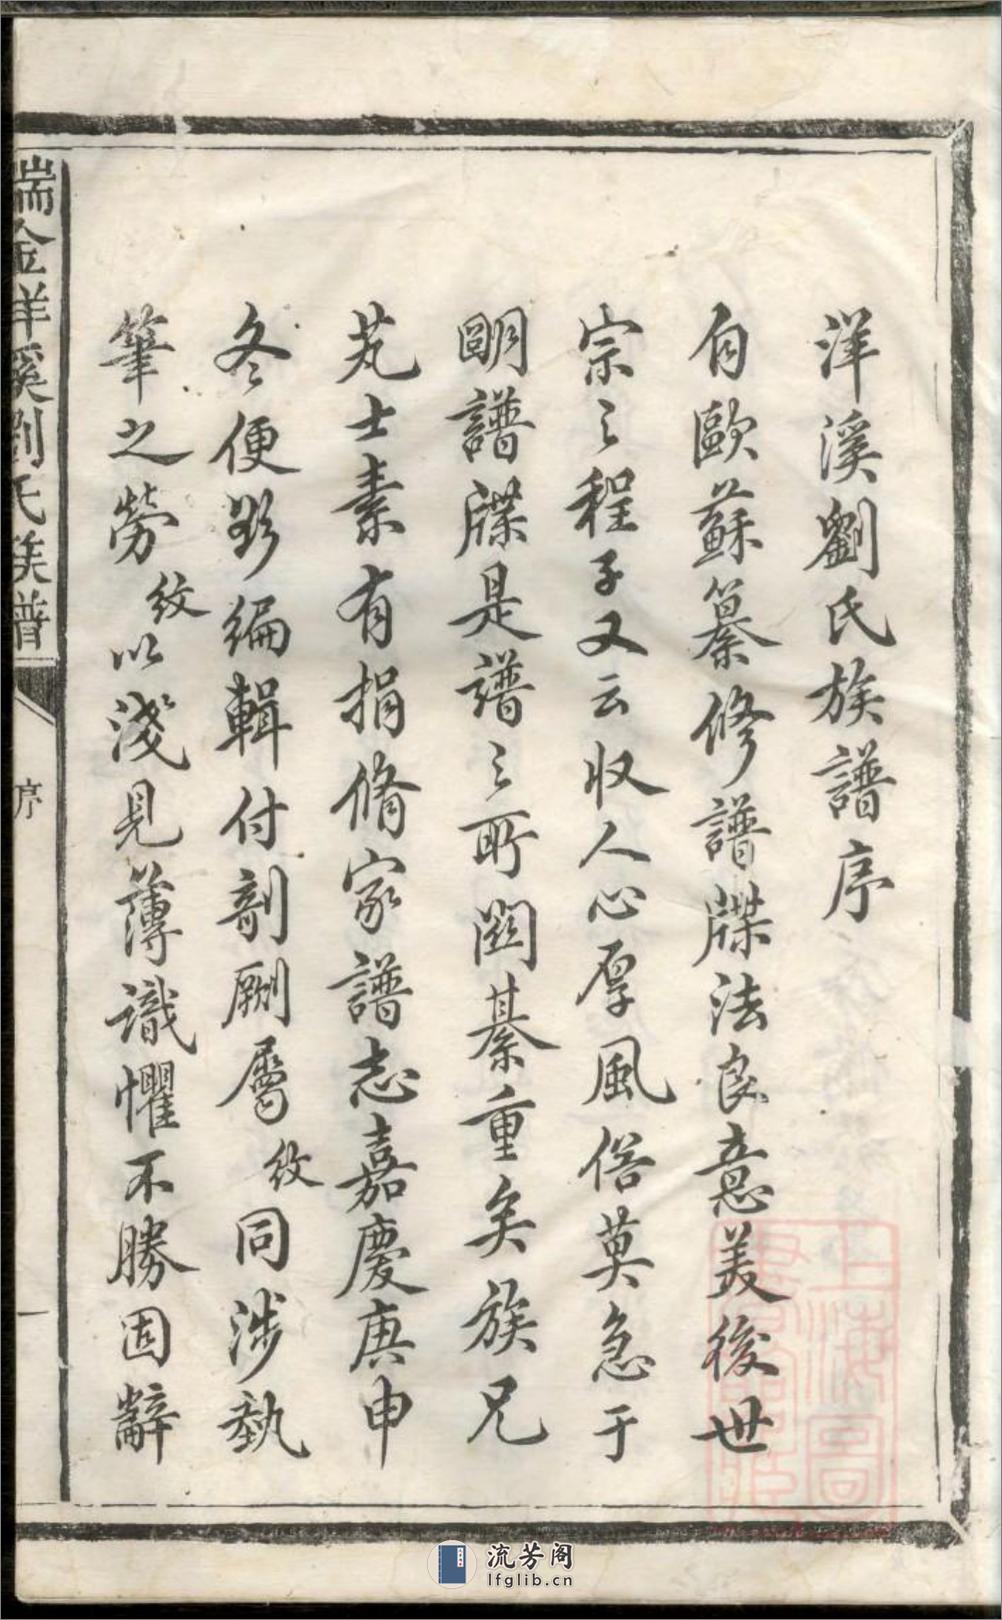 洋溪劉氏族譜序
自歐蘇纂修譜牒法良意美後世
宗之程子又云収人心厚風俗莫急于
明譜牒是譜之所關綦重矣族兄
芃士素有捐脩家譜志嘉慶庚申
冬便欲編輯付剞劂屬紋同涉執
筆之勞紋以淺見薄識懼不勝固辭
瑞金洋溪劉氏族譜
序
一
上海圖
流芳阁
lfglib.cn